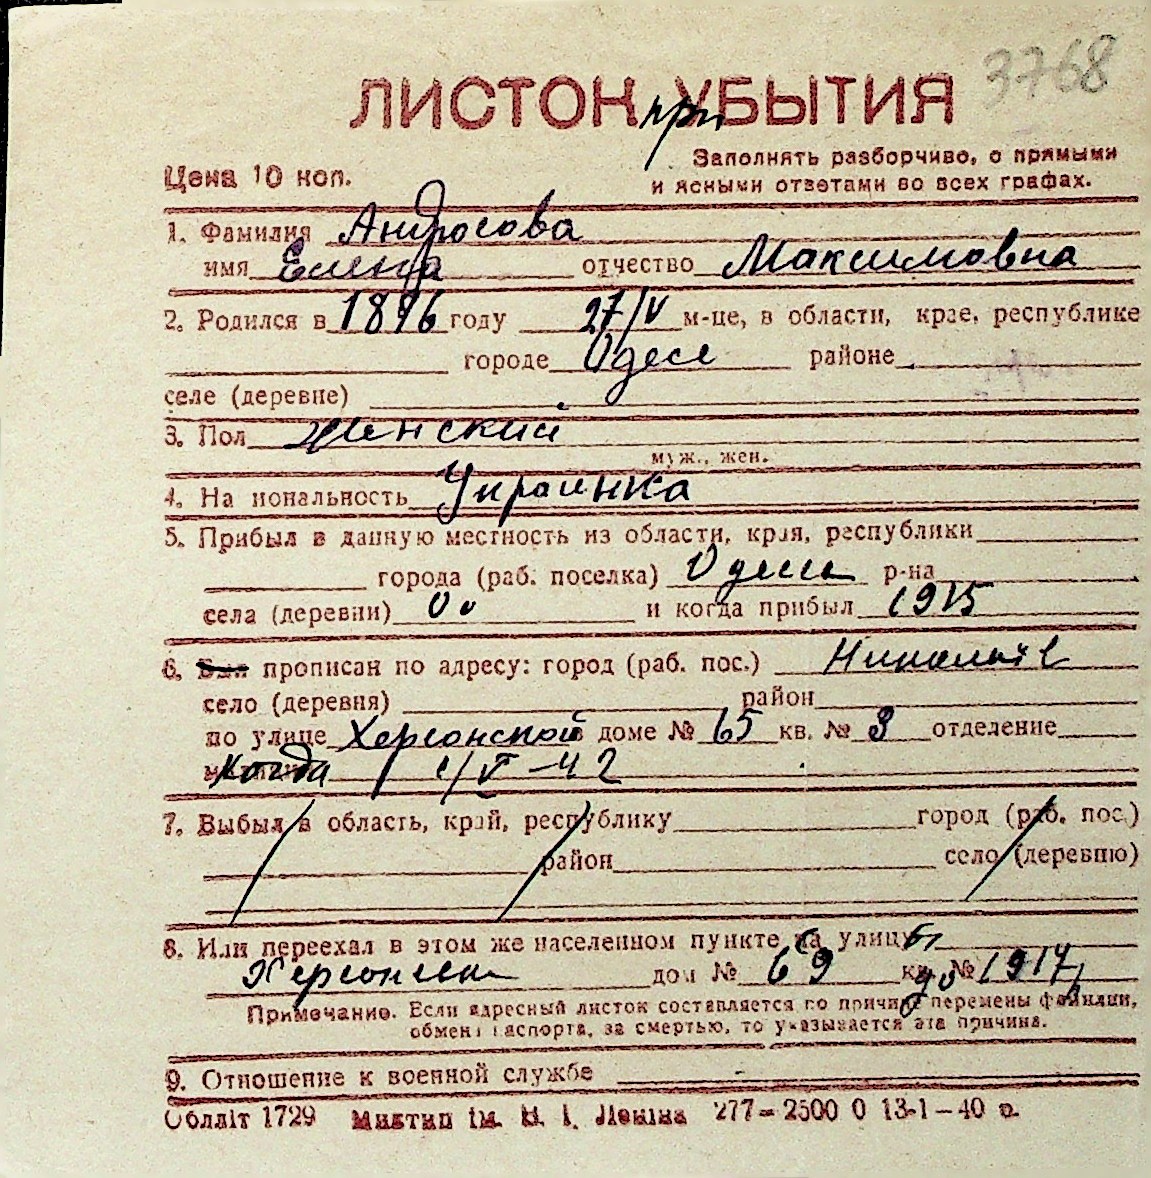 3768
ЛИСТОК УБЫТИЯ
при
Цена 10 коп.
Заполнять разборчиво, с прямыми
и ясными ответами во всех графах.
1. Фамилия Андросова
имя Елена отчество Максимовна
2. Родился в 1896 году 27/V м-це, в области, крае, республике
городе Одесе районе
селе (деревне)
3. Пол женский
муж., жен.
4. На иональность Украинка
5. Прибыл в данную местность из области, края, республики
города (раб. поселка) Одессы р-на
села (деревни) и когда прибыл 1915
6. Был прописан по адресу: город (раб. пос.) Николаев
село (деревня) район
по улице Херсонской в доме № 65 кв. № 3 отделение
Когда V-42
7. Выбыл в область, край, республику город (раб. пос.)
район село (деревню)
8. Или переехал в этом же населенном пункте на улицу
Херсонская дом № 69 кв. № до 1917
Примечание. Если адресный листок составляется по причине перемены фамилии,
обмена паспорта, за смертью, то указывается эта причина.
9. Отношение к военной службе
Облліт 1729 Миктип ім. В. І. Леніна 277–2500 0 13-1–40 р.